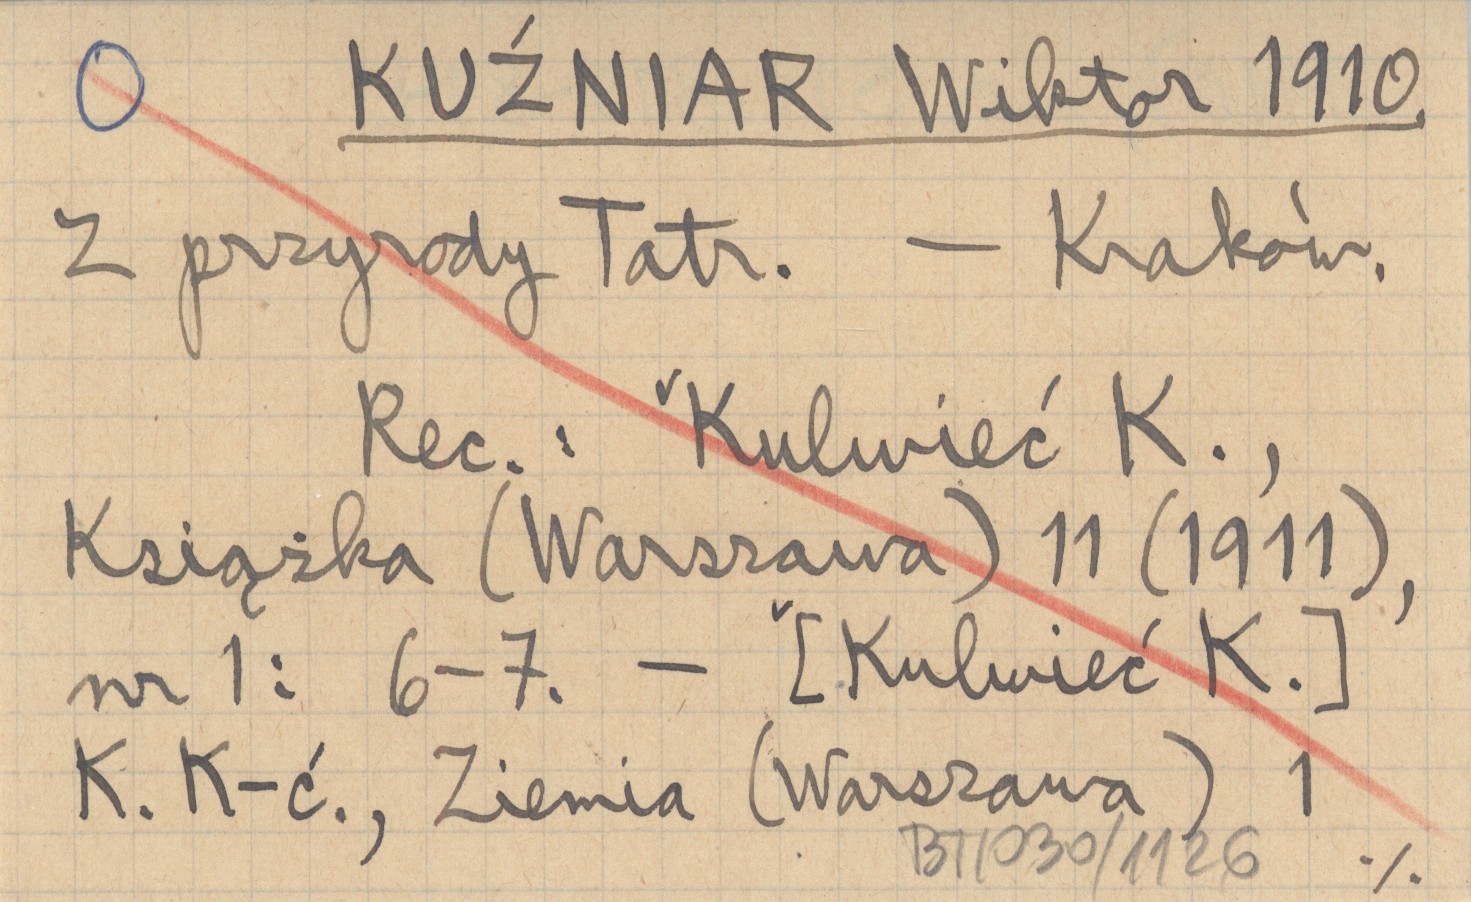 O KUŹNIAR Wiktor 1910.
Z przyrody Tatr. — Kraków.
Rec.: ˇKulwieć K.,
Książka (Warszawa) 11 (1911),
nr 1: 6-7. — ˇ[Kulwieć K.]
K. K-ć., Ziemia (Warszawa) 1
BT/030/1126 ·/.